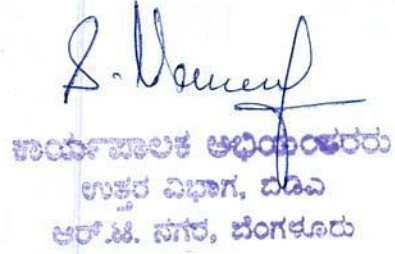 ಕಾರ್ಯಪಾಲಕ ಅಭಿಯಂತರರು
ಉತ್ತರ ವಿಭಾಗ, ಬಿಡಿಎ
ಆರ್.ಟಿ. ನಗರ, ಬೆಂಗಳೂರು